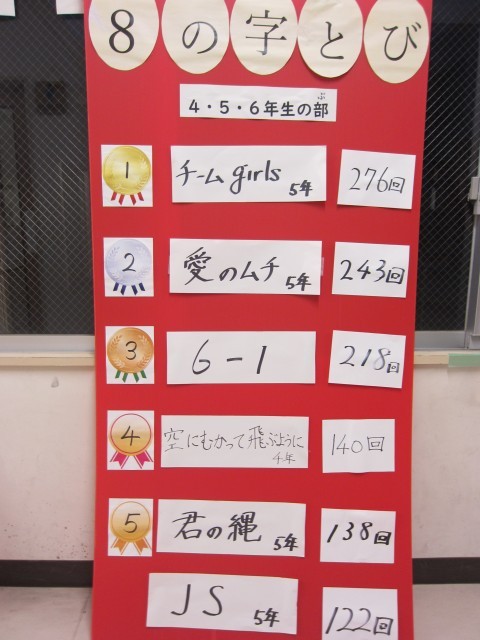 8の字とび
4・5・6年生の部
ぶ
1 チームgirls 5年 276回
2 愛のムチ 5年 243回
3 6-1 218回
4 空にむかって飛ぶように 4年 140回
5 君の縄 5年 138回
JS 5年 122回